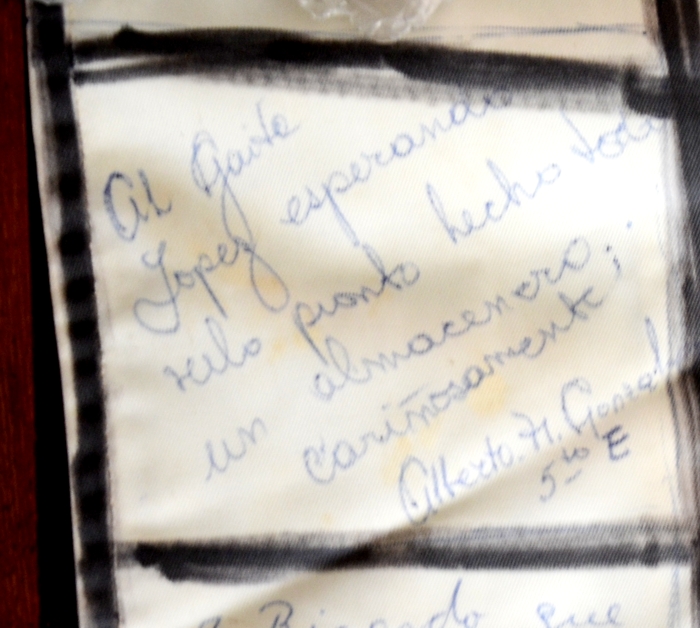 Al Gaita
Lopez esperando
verlo pronto hecho todo
un almacenero;
cariñosamente,
Alberto. H. Gonzal
5to E
Ricardo que